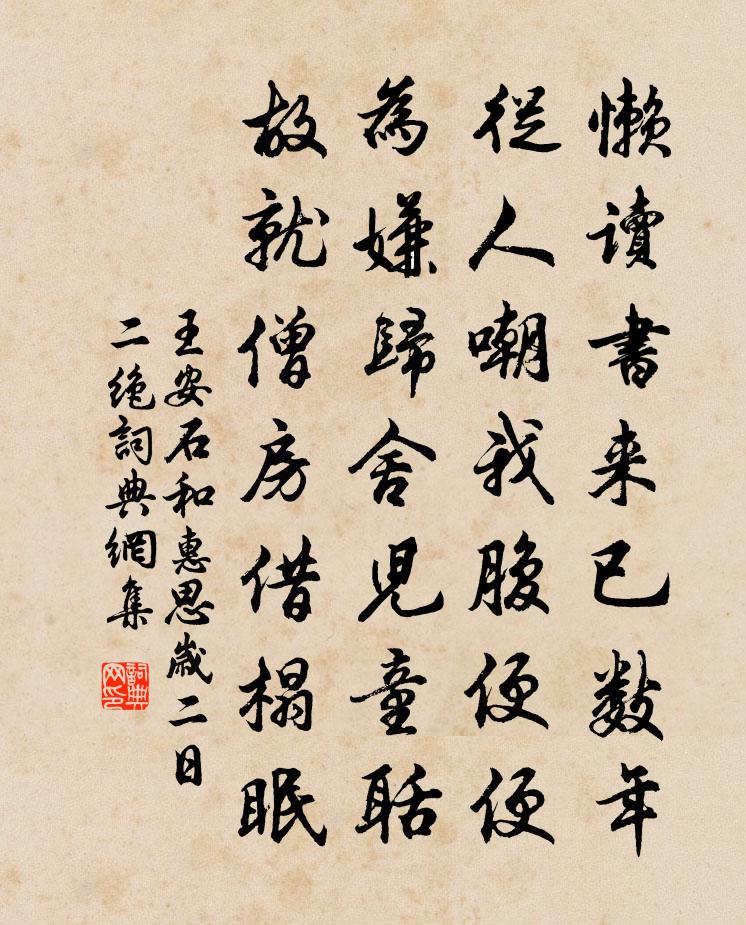 懶讀書来已數年
從人嘲我腹便便
為嫌歸舍兒童聒
故就僧房借榻眠
王安石和惠思歲二日
二絶詞典網集
詞典
网印